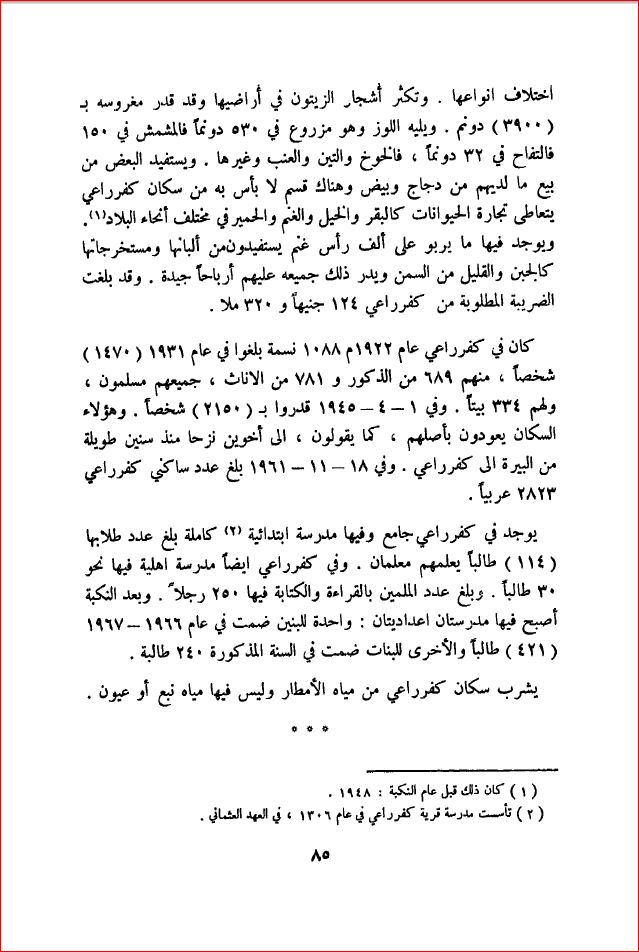 اختلاف انواعها . وتكثر أشجار الزيتون في أراضيها وقد قدر مغروسه بـ
( ٣٩٠٠ ) دونم . ويليه اللوز وهو مزروع في ٥٣٠ دونماً فالمشمش في ١٥٠
فالتفاح في ٣٢ دونماً ، فالخوخ والتين والعنب وغيرها . ويستفيد البعض من
بيع ما لديهم من دجاج وبيض وهناك قسم لا بأس به من سكان كفرراعي
يتعاطى تجارة الحيوانات كالبقر والخيل والغنم والحمير في مختلف أنحاء البلاد(١).
ويوجد فيها ما يربو على ألف رأس غنم يستفيدون من ألبانها ومستخرجاتها
كالجبن والقليل من السمن ويدر ذلك جميعه عليهم أرباحاً جيدة . وقد بلغت
الضريبة المطلوبة من كفرراعي ١٢٤ جنيهاً و ٣٢٠ ملا .
كان في كفرراعي عام ١٩٢٢م ١٠٨٨ نسمة بلغوا في عام ١٩٣١ ( ١٤٧٠ )
شخصاً ، منهم ٦٨٩ من الذكور و ٧٨١ من الاناث ، جميعهم مسلمون ،
ولهم ٣٣٤ بيتاً . وفي ١ – ٤ – ١٩٤٥ قدروا بـ ( ٢١٥٠ ) شخصاً . وهؤلاء
السكان يعودون بأصلهم ، كما يقولون ، الى أخوين نزحا منذ سنين طويلة
من البيرة الى كفرراعي . وفي ١٨ – ١١ – ١٩٦١ بلغ عدد ساكني كفرراعي
٢٨٢٣ عربياً .
يوجد في كفرراعي جامع وفيها مدرسة ابتدائية (٢) كاملة بلغ عدد طلابها
( ١١٤ ) طالباً يعلمهم معلمان . وفي كفرراعي ايضاً مدرسة اهلية فيها نحو
٣٠ طالباً . وبلغ عدد الملمين بالقراءة والكتابة فيها ٢٥٠ رجلاً . وبعد النكبة
أصبح فيها مدرستان اعداديتان : واحدة للبنين ضمت في عام ١٩٦٦ – ١٩٦٧
( ٤٢١ ) طالباً والأخرى للبنات ضمت في السنة المذكورة ٢٤٠ طالبة .
يشرب سكان كفرراعي من مياه الأمطار وليس فيها مياه نبع أو عيون .
* * *
( ١ ) كان ذلك قبل عام النكبة : ١٩٤٨ .
( ٢ ) تأسست مدرسة قرية كفرراعي في عام ١٣٠٦ ، في العهد العثماني .
٨٥